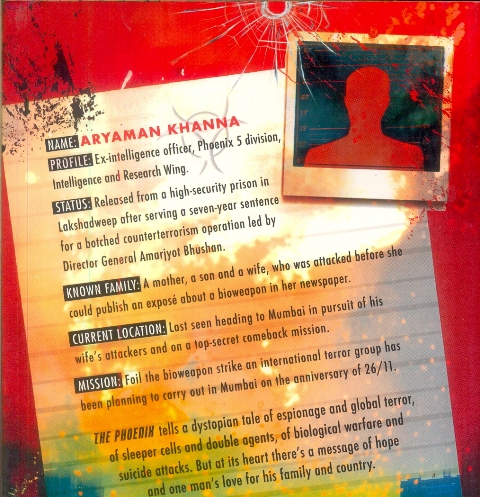 NAME: ARYAMAN KHANNA
PROFILE: Ex-intelligence officer, Phoenix 5 division,
Intelligence and Research Wing.
STATUS: Released from a high-security prison in
Lakshadweep after serving a seven-year sentence
for a botched counterterrorism operation led by
Director General Amarjyot Bhushan.
KNOWN FAMILY: A mother, a son and a wife, who was attacked before she
could publish an exposé about a bioweapon in her newspaper.
CURRENT LOCATION: Last seen heading to Mumbai in pursuit of his
wife's attackers and on a top-secret comeback mission.
MISSION: Foil the bioweapon strike an international terror group has
been planning to carry out in Mumbai on the anniversary of 26/11.
THE PHOENIX tells a dystopian tale of espionage and global terror,
of sleeper cells and double agents, of biological warfare and
suicide attacks. But at its heart there's a message of hope
and one man's love for his family and country.